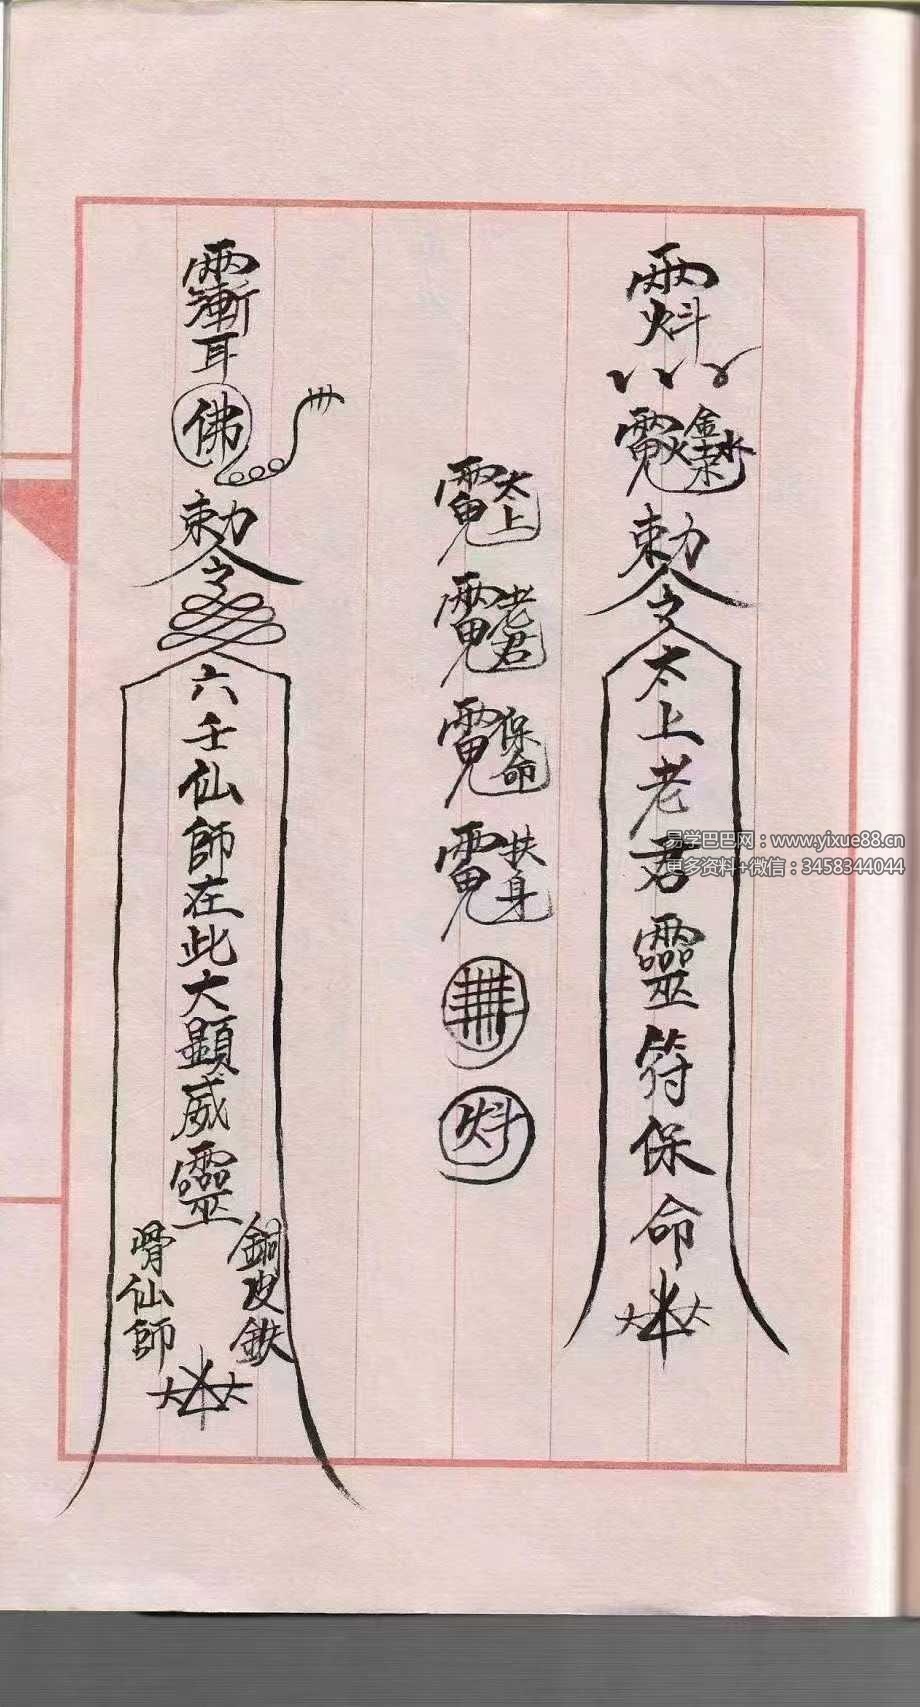 敕令
太上老君靈符保命
太上
老君
保命
扶身
佛
敕令
六壬仙師在此大顯威靈
銅皮鉄
骨仙師
易学巴巴网：www.yixue88.cn
更多资料+微信：3458344044